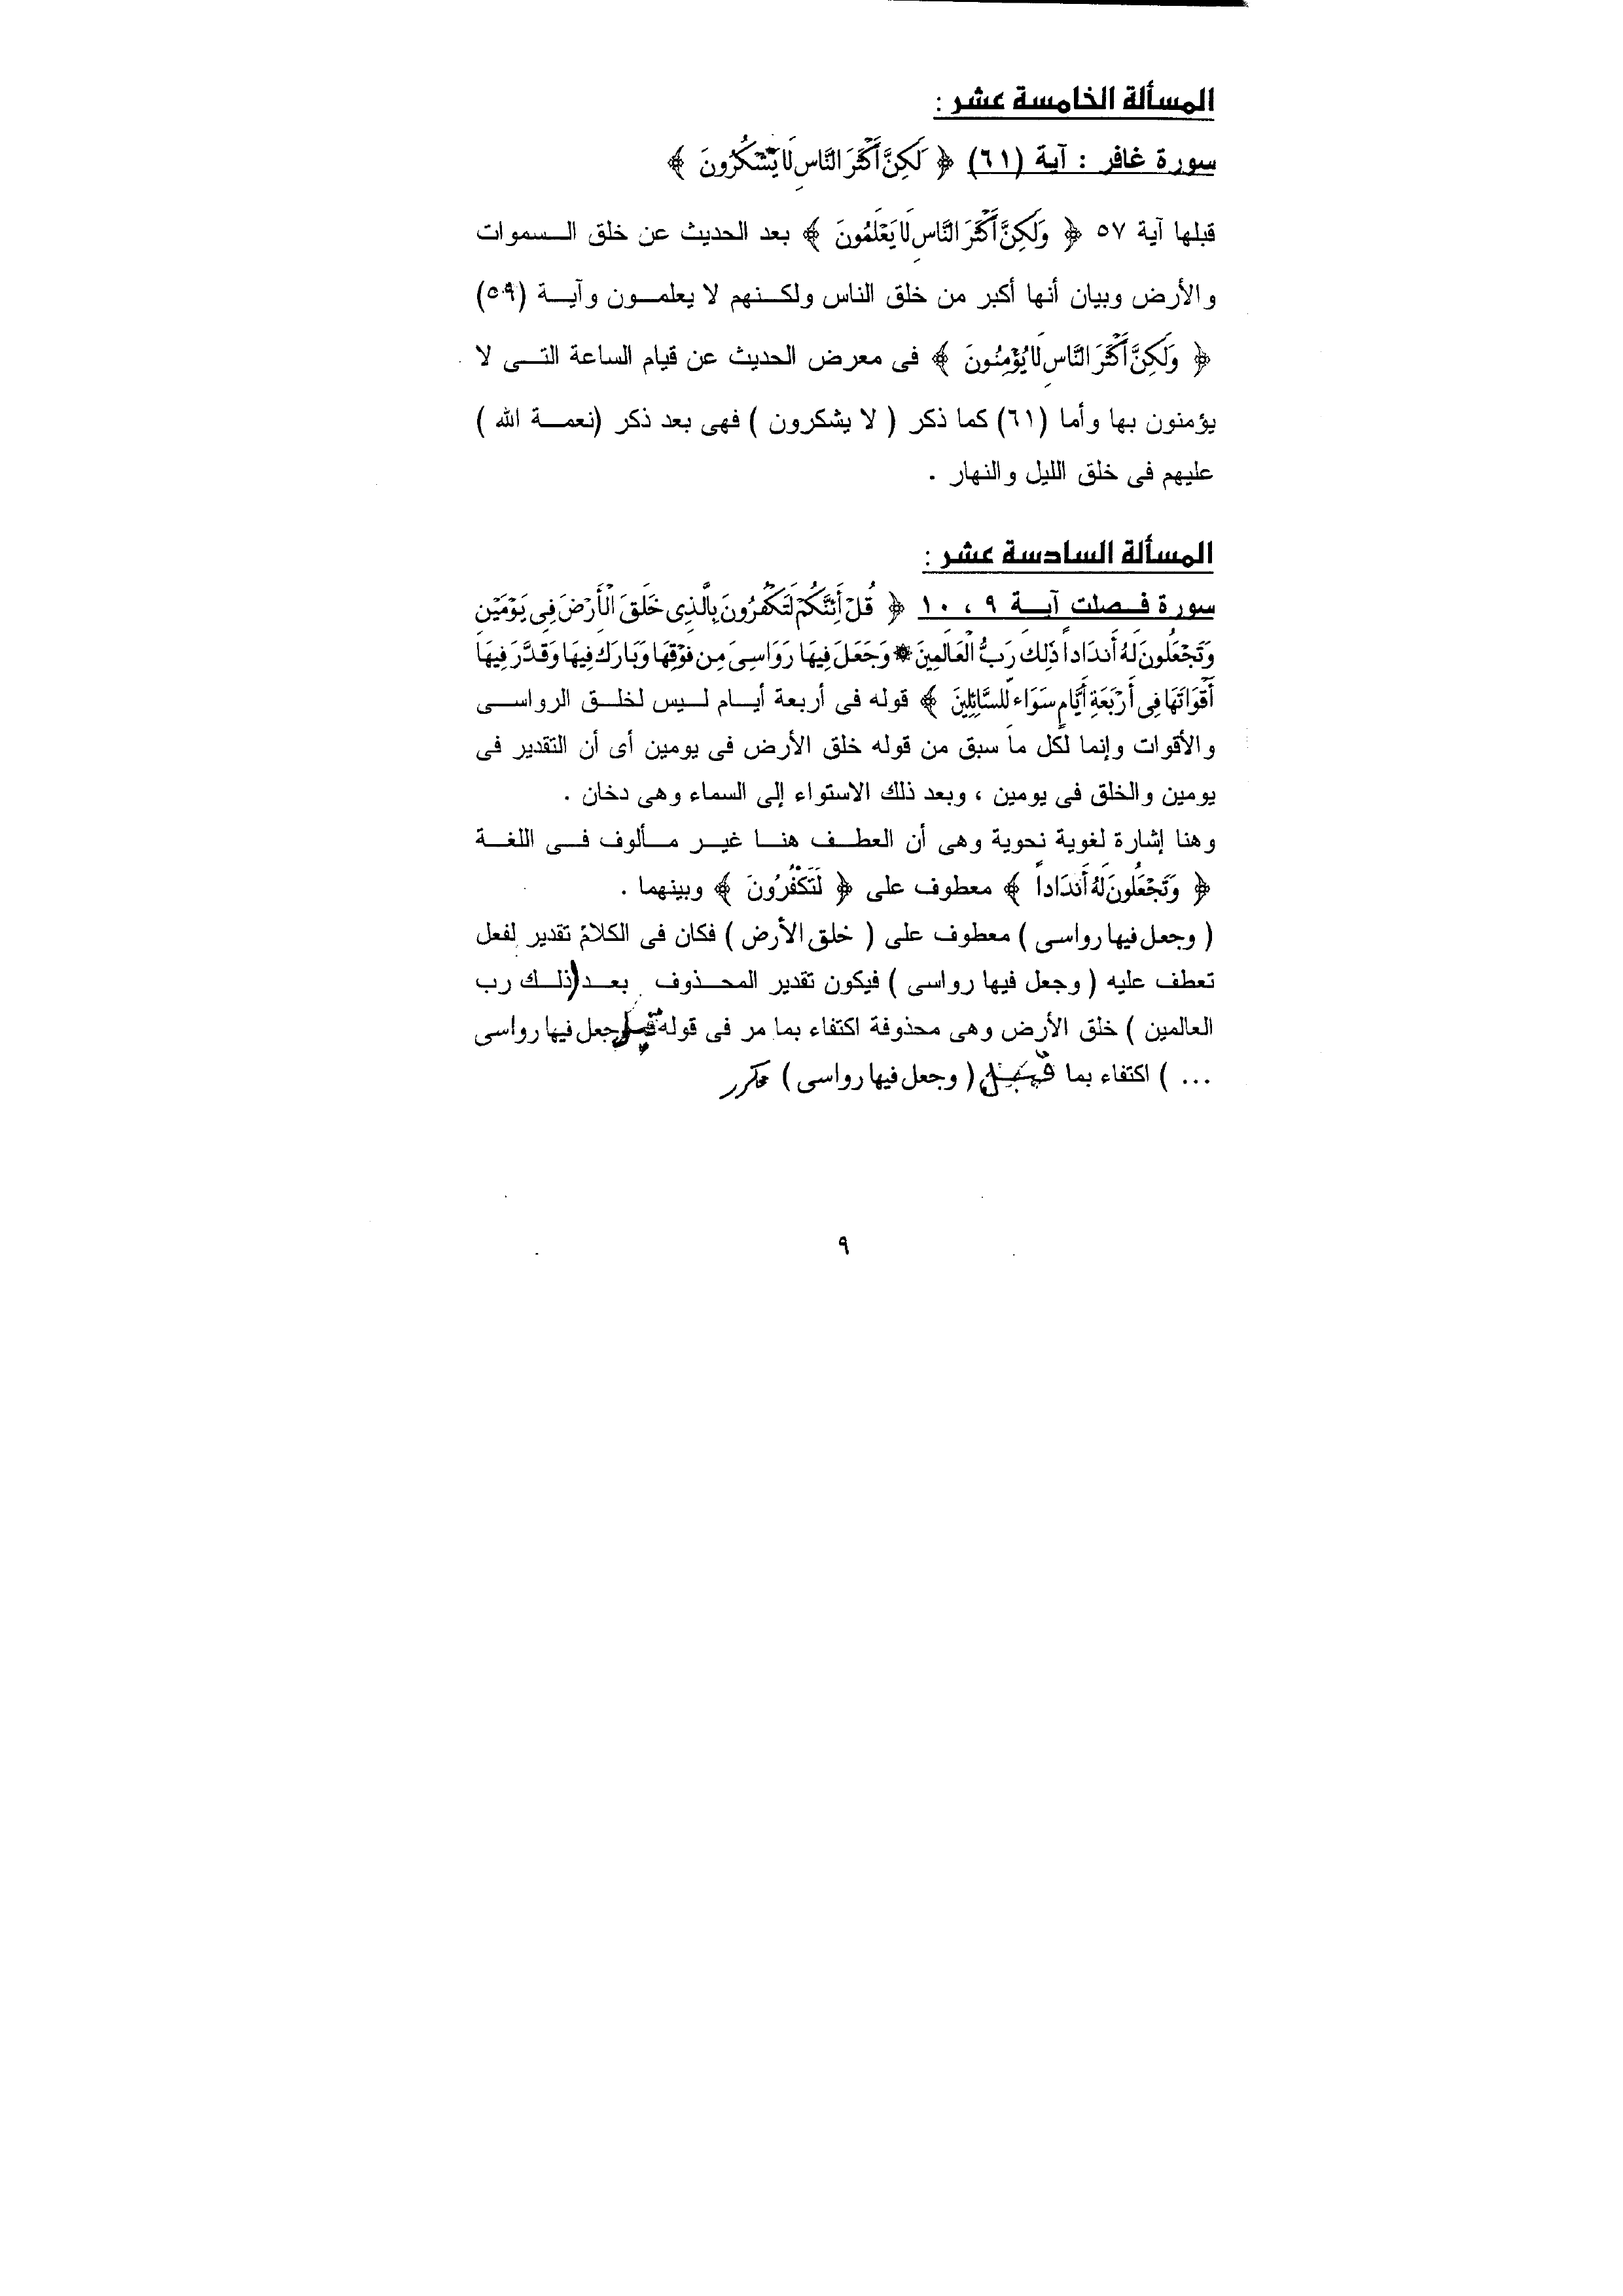 المسألة الخامسة عشر :
سورة غافر : آية (٦١) ﴿ لَكِنَّ أَكْثَرَ النَّاسِ لَا يَشْكُرُونَ ﴾
قبلها آية ٥٧ ﴿ وَلَكِنَّ أَكْثَرَ النَّاسِ لَا يَعْلَمُونَ ﴾ بعد الحديث عن خلق السموات
والأرض وبيان أنها أكبر من خلق الناس ولكنهم لا يعلمون وآية (٥٩)
﴿ وَلَكِنَّ أَكْثَرَ النَّاسِ لَا يُؤْمِنُونَ ﴾ فى معرض الحديث عن قيام الساعة التى لا
يؤمنون بها وأما (٦١) كما ذكر ( لا يشكرون ) فهى بعد ذكر (نعمة الله )
عليهم فى خلق الليل والنهار .
المسألة السادسة عشر :
سورة فصلت آية ٩ ، ١٠ ﴿ قُلْ أَئِنَّكُمْ لَتَكْفُرُونَ بِالَّذِى خَلَقَ الْأَرْضَ فِى يَوْمَيْنِ
وَتَجْعَلُونَ لَهُ أَندَاداً ذَلِكَ رَبُّ الْعَالَمِينَ * وَجَعَلَ فِيهَا رَوَاسِىَ مِن فَوْقِهَا وَبَارَكَ فِيهَا وَقَدَّرَ فِيهَا
أَقْوَاتَهَا فِى أَرْبَعَةِ أَيَّامٍ سَوَاء لِّلسَّائِلِينَ ﴾ قوله فى أربعة أيام ليس لخلق الرواسى
والأقوات وإنما لكل ما سبق من قوله خلق الأرض فى يومين أى أن التقدير فى
يومين والخلق فى يومين ، وبعد ذلك الاستواء إلى السماء وهى دخان .
وهنا إشارة لغوية نحوية وهى أن العطف هنا غير مألوف فى اللغة
﴿ وَتَجْعَلُونَ لَهُ أَندَاداً ﴾ معطوف على ﴿ لَتَكْفُرُونَ ﴾ وبينهما .
( وجعل فيها رواسى ) معطوف على ( خلق الأرض ) فكان فى الكلام تقدير لفعل
تعطف عليه ( وجعل فيها رواسى ) فيكون تقدير المحذوف بعد (ذلك رب
العالمين ) خلق الأرض وهى محذوفة اكتفاء بما مر فى قوله قبل وجعل فيها رواسى
... ) اكتفاء بما قبل ( وجعل فيها رواسى ) مكرر
٩